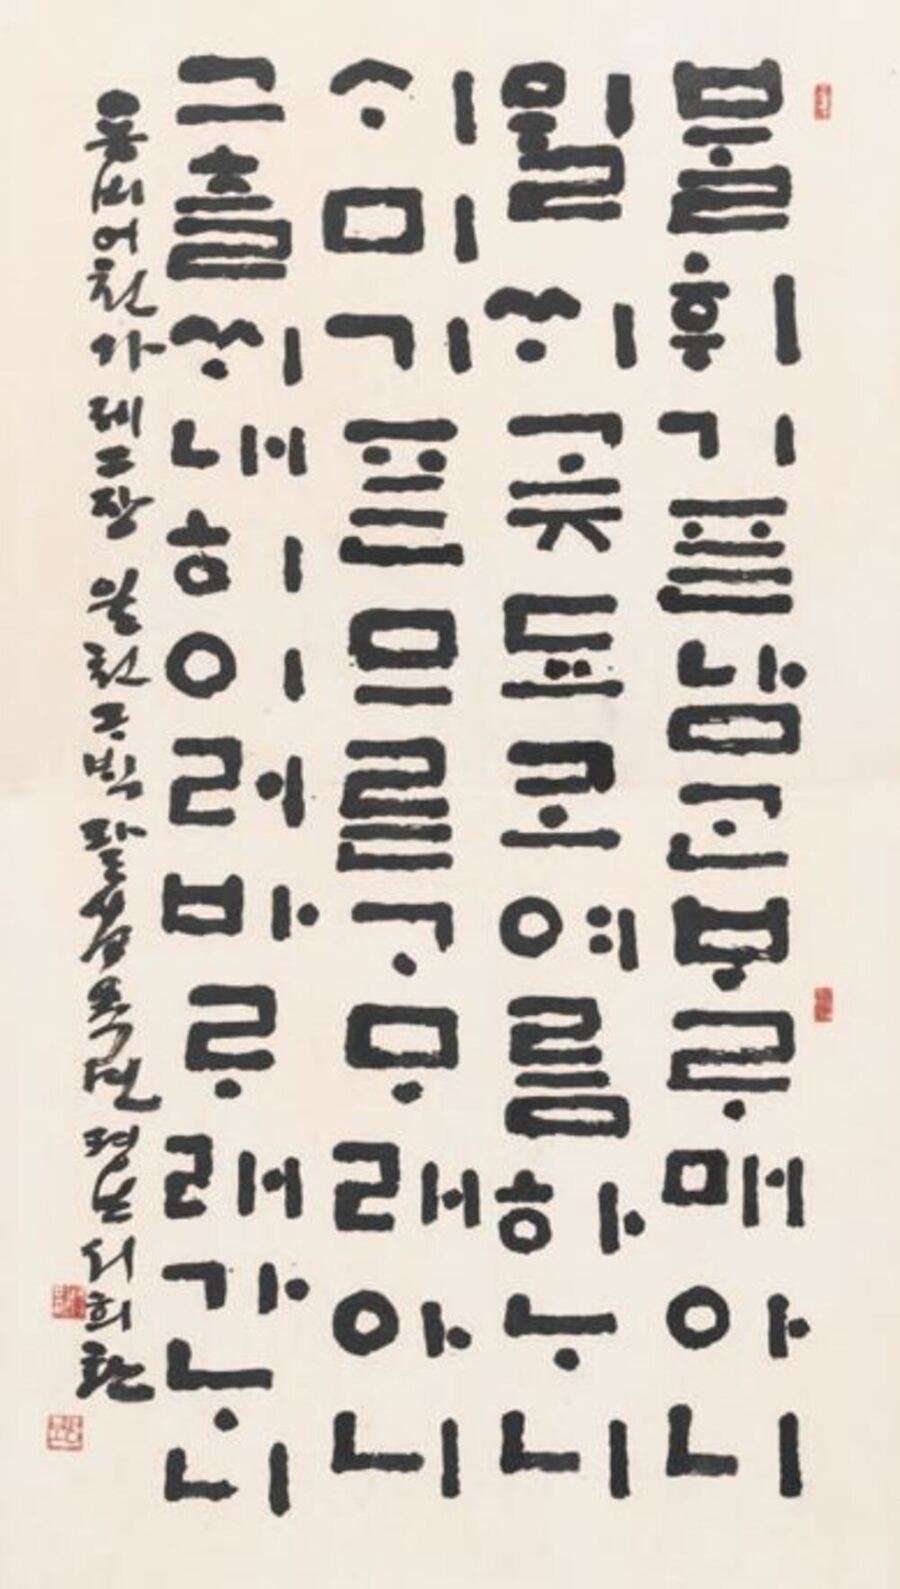 불휘기픈남ᄀᆞᆫᄇᆞᄅᆞ매아니
뮐ᄊᆡ곶됴코여름하ᄂᆞ니
ᄉᆡ미기픈므른ᄀᆞᄆᆞ래아니
그츨ᄊᆡ내히이러바ᄅᆞ래가ᄂᆞ니
용비어천가 제二장 일천구백팔십육년 평보 서희환